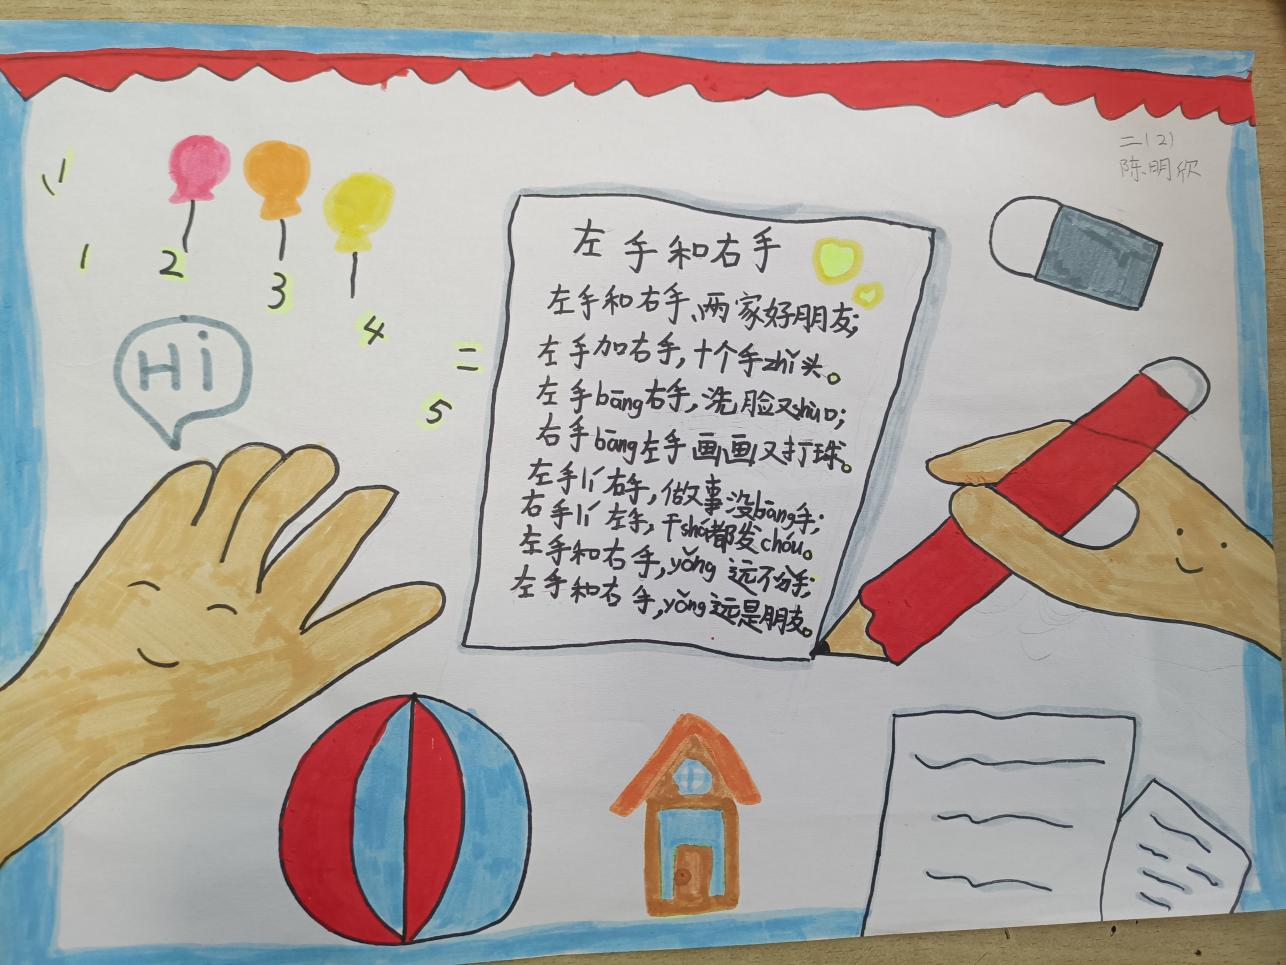 二(2)
陈明欣
1
2
3
4
=
5
Hi
左手和右手
左手和右手、两家好朋友;
左手加右手,十个手zhǐ头。
左手bāng右手,洗脸又shù口;
右手bāng左手画画又打球。
左手lí右手,做事没bāng手;
右手lí左手,干shá都发chóu。
左手和右手,yǒng远不分手;
左手和右手,yǒng远是朋友。